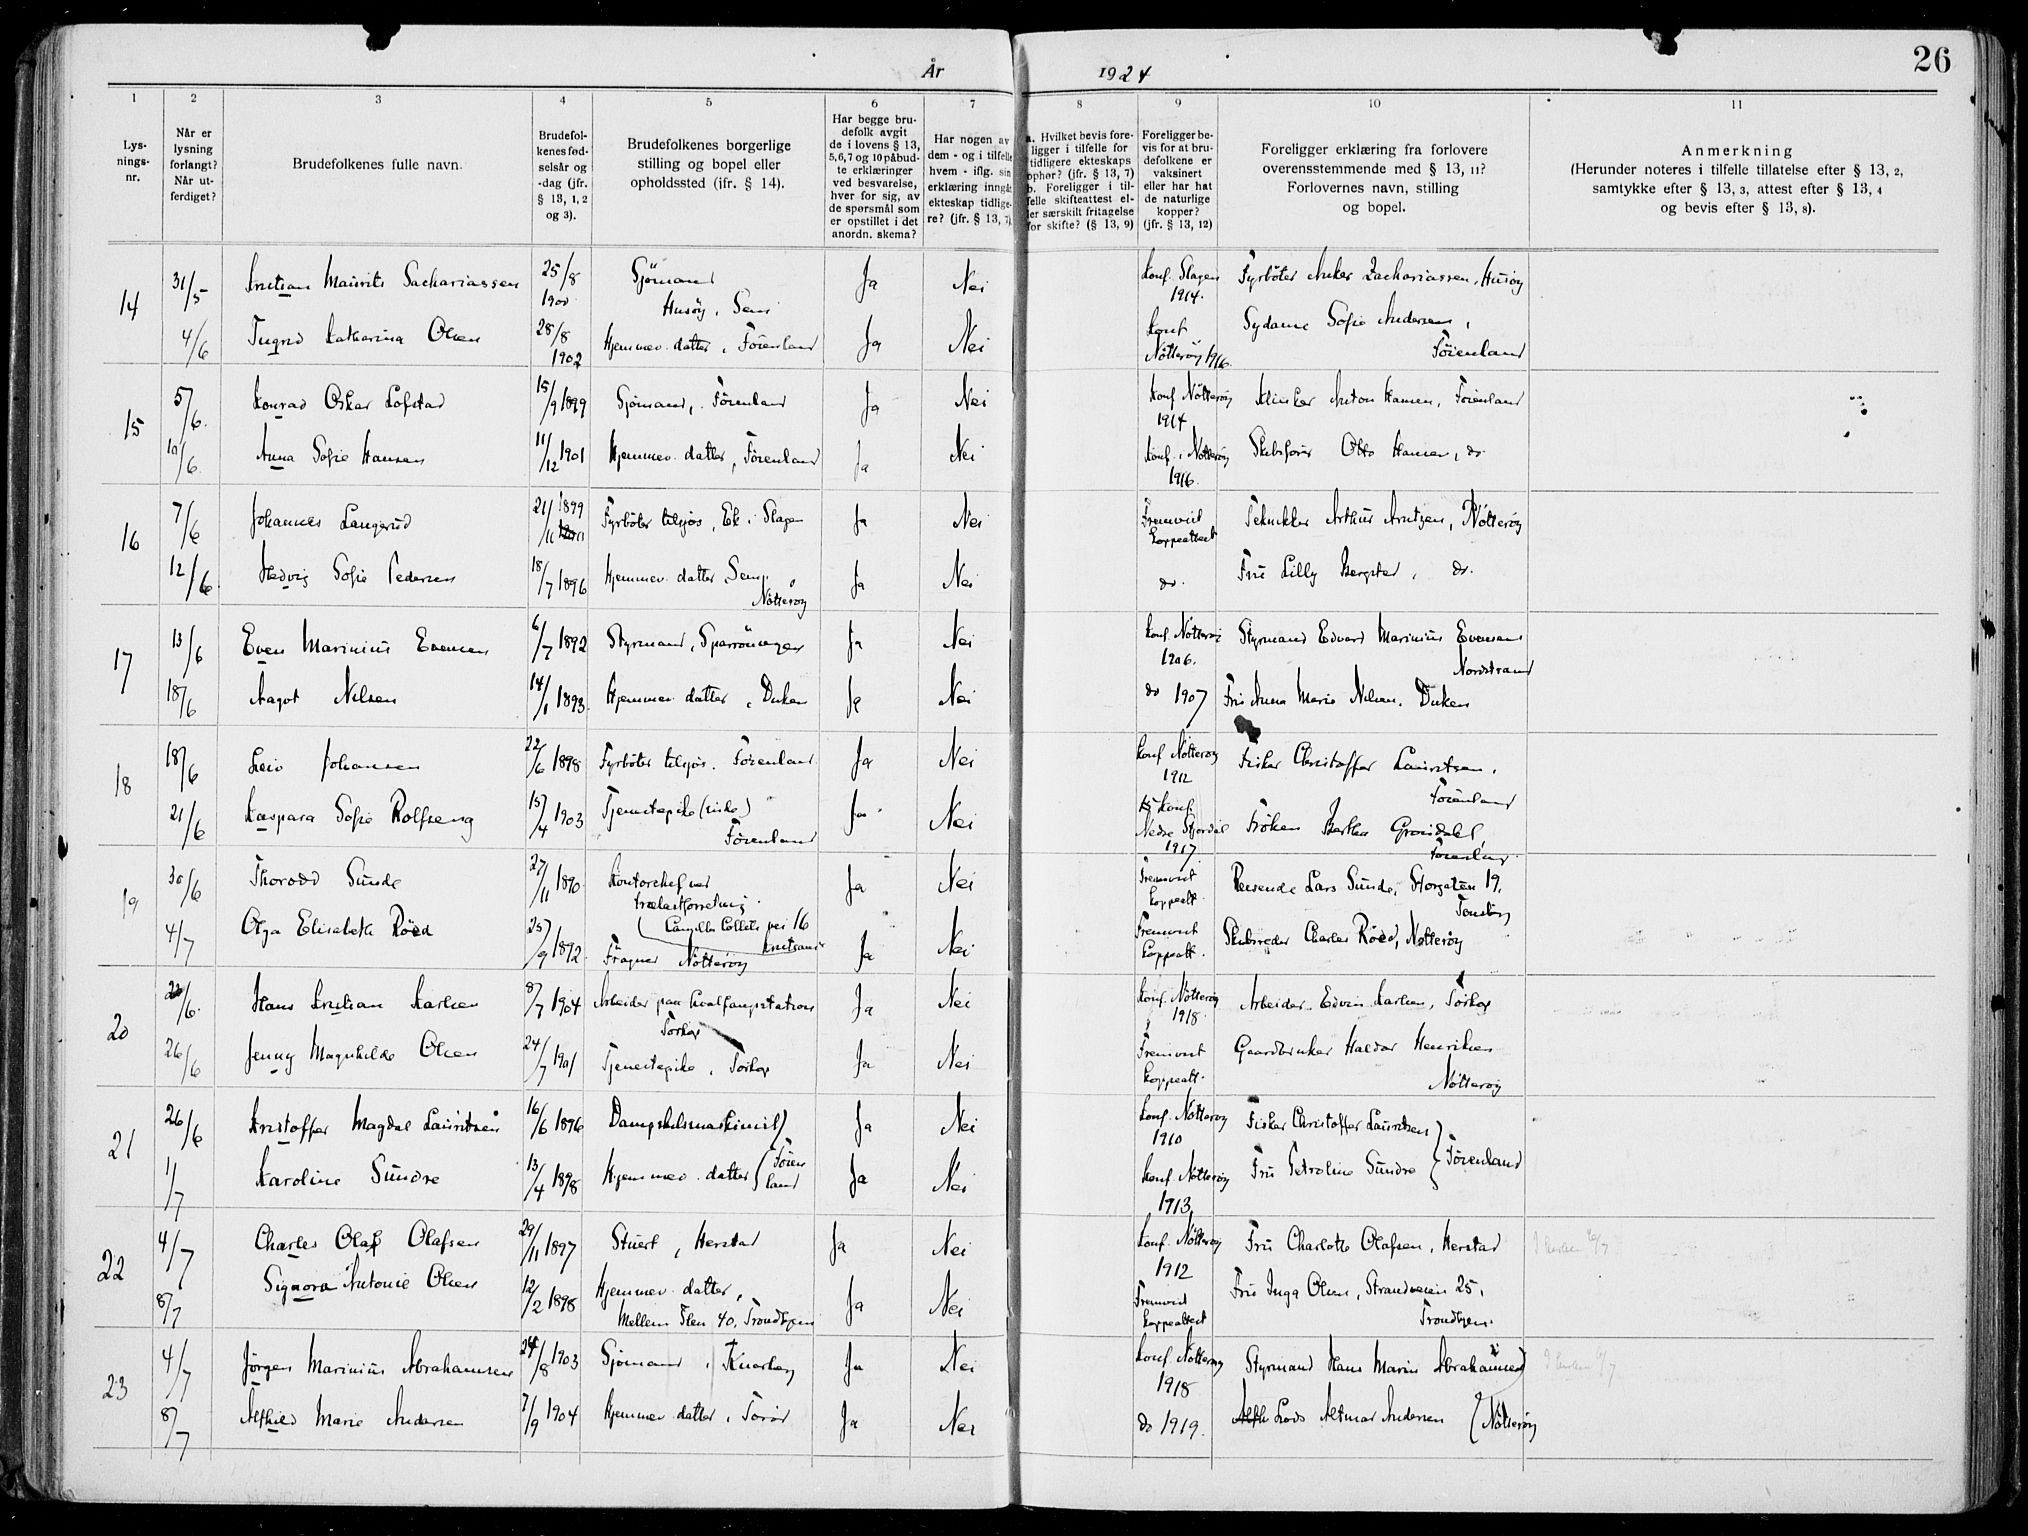 26
År 1924
1 2 3 4 5 6 7 8 9 10 11
Lys-
nings-
nr.
Når er
lysning
forlangt?
Når ut-
ferdiget?
Brudefolkenes fulle navn.
Brudefol-
kenes fød-
selsår og
-dag (jfr.
§ 13, 1, 2
og 3).
Brudefolkenes borgerlige
stilling og bopel eller
opholdssted (jfr. § 14).
Har begge bru-
defolk avgit
de i lovens § 13,
5,6,7 og 10 påbud-
te erklæringer
ved besvarelse,
hver for sig, av
de spørsmål som
er opstillet i det
anordn. skema?
Har nogen av
dem - og i tilfelle
hvem - iflg. sin
erklæring inngåt
ekteskap tidlige-
re? (jfr. § 13, 7)
a. Hvilket bevis fore-
ligger i tilfelle for
tidligere ekteskaps
ophør? (jfr. § 13, 7)
b. Foreligger i til-
felle skifteattest el-
ler særskilt fritagelse
for skifte? (§ 13, 9)
Foreligger be-
vis for at bru-
defolkene er
vaksinert
eller har hat
de naturlige
kopper?
(jfr. § 13, 12)
Foreligger erklæring fra forlovere
overensstemmende med § 13, 11?
Forlovernes navn, stilling
og bopel.
Anmerkning
(Herunder noteres i tilfelle tillatelse efter § 13, 2,
samtykke efter § 13, 3, attest efter § 13, 4
og bevis efter § 13, 8).
14 31/5 Kristian Maurits Sachariassen 25/8 1900 Sjömand Husöy, Sem Ja Nei Konf. Slagen 1914. Fyrböter Anker Zachariassen, Husöy
4/6 Ingrid Katharina Olsen 28/8 1902 Hjemmev. datter, Föienland Ja Nei Konf Nötteröy 1916. Sydame Sofie Andersen, Föienland
15 5/6. Konrad Oskar Lofstad 15/9 1899 Sjömand, Föienland Ja Nei Konf Nötteröy 1914 Klinker Anton Hansen, Föienland
10/6. Anna Sofie Hansen 11/12 1901 Hjemmev. datter, Föienland Ja Nei Konf. i Nötteröy 1916. Skibsförer Otto Hansen, do
16 7/6 Johannes Langerud 21/11 1899 Fyrböter tilsjös, Ek i Slagen Ja Nei Fremvist koppeattest Tekniker Arthur Arntzen, Nötteröy
12/6 Hedvig Sofie Pedersen 18/7 1896 Hjemmev. datter Sem, Nötteröy Ja Nei do. Fru Lilly Bergsted, do.
17 13/6 Even Marinius Evensen 6/7 1892 Styrmand, Ja Nei Konf. Nötteröy 1906. Styrmand Edvard Marinius Evensen Nordstrand
18/6 Aagot Nilsen 14/1 1893. Hjemmev. datter, Duken Ja Nei do 1907 Fru Anna Marie Nilsen, Duken
18 18/6 Leio Johansen 22/6 1898 Fyrböter tilsjös. Föienland Ja Nei Konf Nötteröy 1912 Fisker Christoffer Lauritsen, Föienland
21/6 Kaspara Sofie Rolfseng 15/4 1903 Tjenestepike (niske) Föienland Ja Nei Konf. Nedre Stjördal 1917 Fröken Bertha Gröndahl, Föienland
19 30/6 Thorodd Sunde 27/11 1890 Kontorchef ved trælastforretning. (Camilla Colletts vei 16 Kristiania Ja Nei Fremvist koppeatt. Reisende Lars Sunde, Storgaten 19, Tönsberg
4/7 Olga Elisabeth Röed 25/9 1892. Frøken Nötteröy Ja Nei Fremvist koppeatt. Skibsreder Charles Röed, Nötteröy
20 /6. Hans Kristian Karlsen 8/7 1904 Arbeider paa hvalfangststation Torkop Ja Nei Konf. Nötteröy 1918. Arbeider Edvin Karlsen, Torkop
26/6 Jenny Magnhilde Olsen 24/7 1901 Tjenestepike, Torkop Ja Nei Fremvist koppeatt. Gaardbruker Haldor Henriksen Nötteröy
21 26/6 Kristoffer Magdal Lauritsen 16/6 1896 Dampskibsmaskinist Ja Nei Konf. Nötteröy 1910 Fisker Christoffer Lauritsen
1/7 Karoline Sundre 13/4 1898 Hjemmev. datter Föienland Ja Nei Konf. Nötteröy 1913. Fru Petroline Sundre Föienland
22 4/7 Charles Olaf Olafsen 29/11 1897 Stuert, Herstad Ja Nei Konf. Nötteröy 1912 Fru Charlotte Olafsen, Herstad I kirken 6/7
8/7 Signora Antonie Olsen 12/2 1898 Hjemmev. datter, Mellem Ilen 40, Trondhjem Ja Nei Fremvist koppeattest Fru Inga Olsen, Strandveien 25, Trondhjem.
23 4/7 Jörgen Marinius Abrahamsen 24/8 1903 Sjömand, Knarberg Ja Nei Konf. Nötteröy 1918 Styrmand Hans Marius Abrahamsen I kirken 6/7
8/7 Alfhild Marie Andersen 7/9 1904 Hjemmev. datter, Toröd Ja Nei do 1919. Lods Altmar Andersen Nötteröy